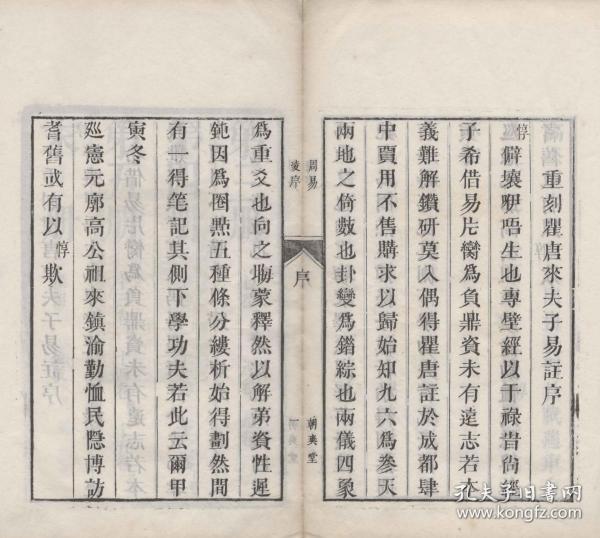 重刻瞿唐來夫子易註序
惇僻壤咿唔生也專壁經以干祿昔尙經
子希借易片臠爲負鼎資未有遠志若本
義難解鑽研莫入偶得瞿唐註於成都肆
中賈用不售購求以歸始知九六爲參天
兩地之倚數也卦變爲錯綜也兩儀四象
周易
凌序
序
朝爽堂
爲重爻也向之塲蒙釋然以解第資性遲
鈍因爲圈㸃五種條分縷析始得劃然間
有一得笔記其側下學功夫若此云爾甲
寅冬
廵憲元廓高公祖來鎮渝勤恤民隱博訪
耆舊或有以惇欺
孔夫子旧书网
www.kongfz.com